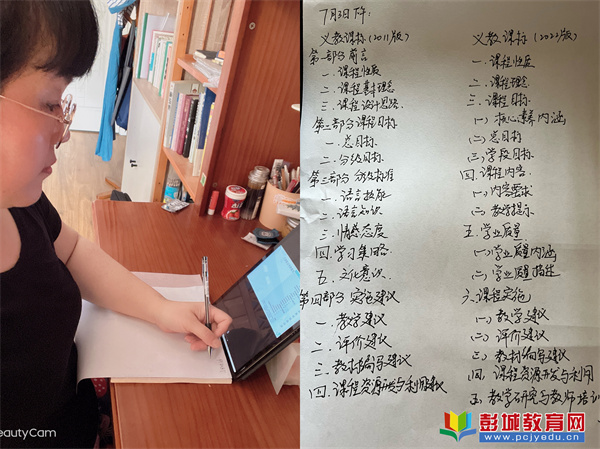 7月3日下午:
义教课标(2011版)
第一部分 前言
一.课程性质
二.课程基本理念
三.课程设计思路
第二部分 课程目标
一.总目标
二.分级目标
第三部分 分级标准
一.语言技能
二.语言知识
三.情感态度
四.学习策略
五.文化意识
第四部分 实施建议
一.教学建议
二.评价建议
三.教材编写建议
四.课程资源开发与利用建议
义教课标(2022版)
一.课程性质
二.课程理念
三.课程目标
(一)核心素养内涵
(二)总目标
(三)学段目标
四.课程内容
(一)内容要求
(二)教学提示
五.学业质量
(一)学业质量内涵
(二)学业质量描述
六.课程实施
(一)教学建议
(二)评价建议
(三)教材编写建议
四.课程资源开发与利用
五.教学研究与教师培训
eautyCam
彭城教育网
www.pcjyedu.cn